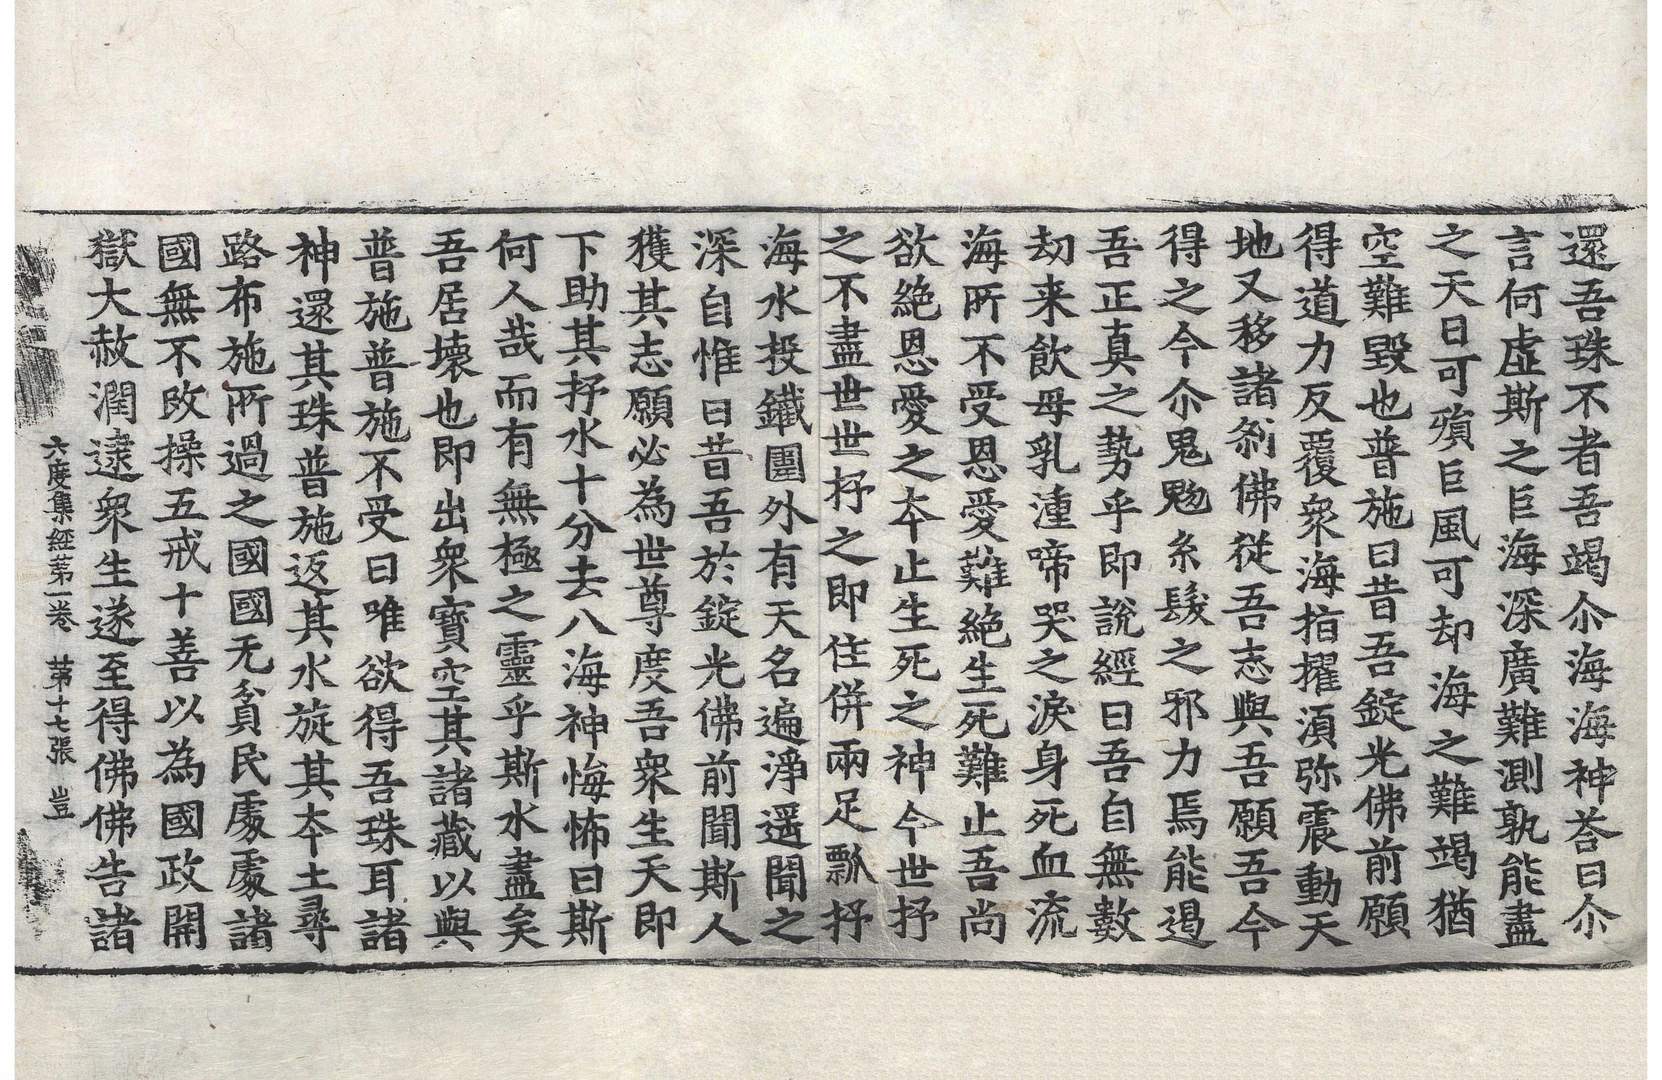 還吾珠不者吾竭尒海海神荅曰尒
言何虛斯之巨海深廣難測孰能盡
之天日可殞巨風可却海之難竭猶
空難毀也普施曰昔吾錠光佛前願
得道力反覆衆海指擢湏弥震動天
地又移諸刹佛從吾志與吾願吾今
得之今尒鬼魅糸髮之邪力焉能遏
吾正真之勢乎即說經曰吾自無數
劫来飲母乳湩啼哭之淚身死血流
海所不受恩愛難絕生死難止吾尚
欲絕恩愛之夲止生死之神今世抒
之不盡世世抒之即住併兩足瓢抒
海水投鐵圍外有天名遍淨遥聞之
深自惟曰昔吾於錠光佛前聞斯人
獲其志願必為世尊度吾衆生天即
下助其抒水十分去八海神悔怖曰斯
何人哉而有無極之靈乎斯水盡矣
吾居壞也即出衆寶空其諸藏以與
普施普施不受曰唯欲得吾珠耳諸
神還其珠普施返其水旋其夲土尋
路布施所過之國國无貧民處處諸
國無不改操五戒十善以為國政開
獄大赦潤逮衆生遂至得佛佛告諸
六度集經苐一卷　苐十七張　豈